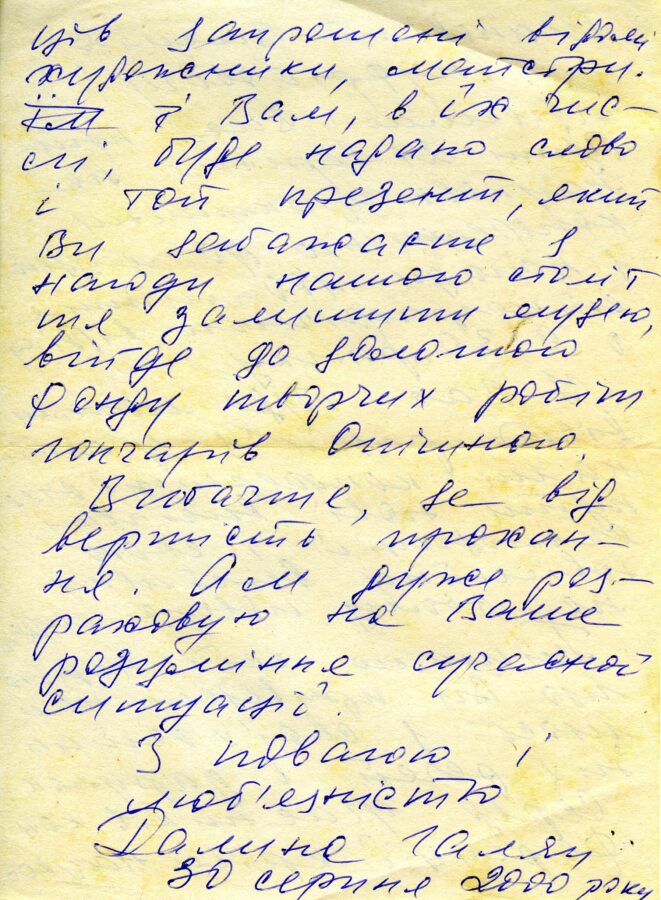 ців запрошені відомі
художники, майстри.
Їм і Вам, в їх чис-
лі, буде надано слово
і той презент, який
Ви забажаєте з
нагоди нашого століт
тя залишити музею,
війде до золотого
фонду творчих робіт
гончарів Опішного.
Вибачте, за від
вертість прохан-
ня. Але дуже роз-
раховую на Ваше
розуміння сучасної
ситуації.
З повагою і
люб'язністю
Галина Галян
30 серпня 2000 року